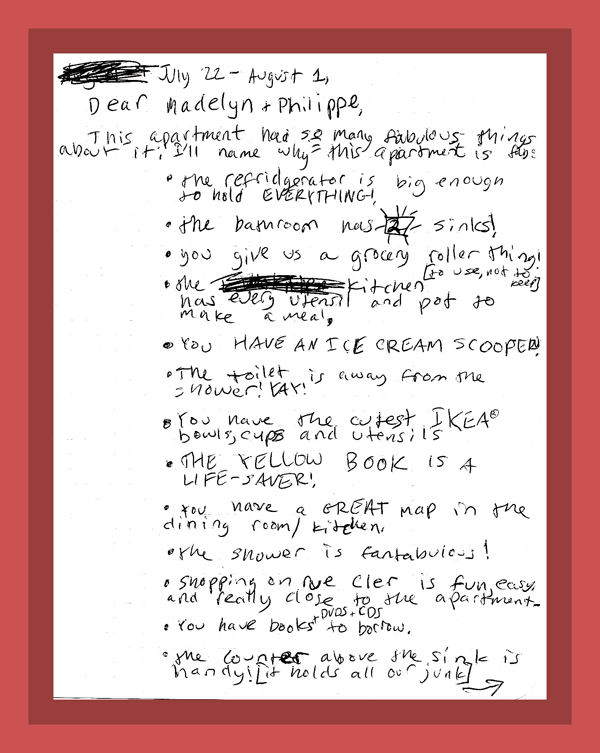 July 22 - August 1,
Dear Madelyn + Philippe,
This apartment had so many fabulous things
about it; I'll name why this apartment is fab:
• the refridgerator is big enough
to hold EVERYTHING!
• the bathroom has 2 sinks!
• you give us a grocery roller thing!
[to use, not to
keep]
• the kitchen
has every utensil and pot to
make a meal,
• YOU HAVE AN ICE CREAM SCOOPER!
• The toilet is away from the
shower! YAY!
• You have the cutest IKEA®
bowls, cups and utensils
• THE YELLOW BOOK IS A
LIFE-SAVER!
• You have a GREAT map in the
dining room/kitchen.
• the shower is fantabulous!
• shopping on rue Cler is fun, easy,
and really close to the apartment.
• You have books + DVDS + CDS to borrow.
• the counter above the sink is
handy! [it holds all our junk]